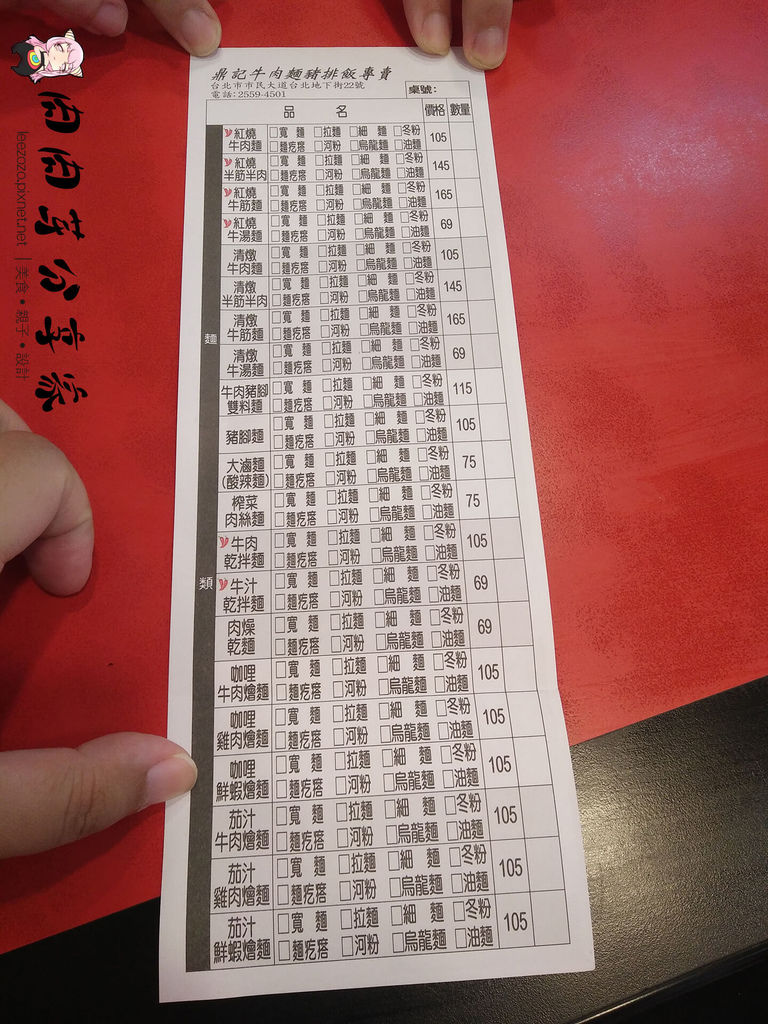 鼎記牛肉麵豬排飯專賣
台北市市民大道台北地下街22號
電話:2559-4501
桌號:
品 名 價格 數量
麵類
紅燒牛肉麵 □寬 麵 □拉麵 □細 麵 □冬粉 105
□麵疙瘩 □河粉 □烏龍麵 □油麵
紅燒半筋半肉 □寬 麵 □拉麵 □細 麵 □冬粉 145
□麵疙瘩 □河粉 □烏龍麵 □油麵
紅燒牛筋麵 □寬 麵 □拉麵 □細 麵 □冬粉 165
□麵疙瘩 □河粉 □烏龍麵 □油麵
紅燒牛湯麵 □寬 麵 □拉麵 □細 麵 □冬粉 69
□麵疙瘩 □河粉 □烏龍麵 □油麵
清燉牛肉麵 □寬 麵 □拉麵 □細 麵 □冬粉 105
□麵疙瘩 □河粉 □烏龍麵 □油麵
清燉半筋半肉 □寬 麵 □拉麵 □細 麵 □冬粉 145
□麵疙瘩 □河粉 □烏龍麵 □油麵
清燉牛筋麵 □寬 麵 □拉麵 □細 麵 □冬粉 165
□麵疙瘩 □河粉 □烏龍麵 □油麵
清燉牛湯麵 □寬 麵 □拉麵 □細 麵 □冬粉 69
□麵疙瘩 □河粉 □烏龍麵 □油麵
牛肉豬腳雙料麵 □寬 麵 □拉麵 □細 麵 □冬粉 115
□麵疙瘩 □河粉 □烏龍麵 □油麵
豬腳麵 □寬 麵 □拉麵 □細 麵 □冬粉 105
□麵疙瘩 □河粉 □烏龍麵 □油麵
大滷麵(酸辣麵) □寬 麵 □拉麵 □細 麵 □冬粉 75
□麵疙瘩 □河粉 □烏龍麵 □油麵
榨菜肉絲麵 □寬 麵 □拉麵 □細 麵 □冬粉 75
□麵疙瘩 □河粉 □烏龍麵 □油麵
牛肉乾拌麵 □寬 麵 □拉麵 □細 麵 □冬粉 105
□麵疙瘩 □河粉 □烏龍麵 □油麵
牛汁乾拌麵 □寬 麵 □拉麵 □細 麵 □冬粉 69
□麵疙瘩 □河粉 □烏龍麵 □油麵
肉燥乾麵 □寬 麵 □拉麵 □細 麵 □冬粉 69
□麵疙瘩 □河粉 □烏龍麵 □油麵
咖哩牛肉燴麵 □寬 麵 □拉麵 □細 麵 □冬粉 105
□麵疙瘩 □河粉 □烏龍麵 □油麵
咖哩雞肉燴麵 □寬 麵 □拉麵 □細 麵 □冬粉 105
□麵疙瘩 □河粉 □烏龍麵 □油麵
咖哩鮮蝦燴麵 □寬 麵 □拉麵 □細 麵 □冬粉 105
□麵疙瘩 □河粉 □烏龍麵 □油麵
茄汁牛肉燴麵 □寬 麵 □拉麵 □細 麵 □冬粉 105
□麵疙瘩 □河粉 □烏龍麵 □油麵
茄汁雞肉燴麵 □寬 麵 □拉麵 □細 麵 □冬粉 105
□麵疙瘩 □河粉 □烏龍麵 □油麵
茄汁鮮蝦燴麵 □寬 麵 □拉麵 □細 麵 □冬粉 105
□麵疙瘩 □河粉 □烏龍麵 □油麵
肉肉芽分享家
leezozo.pixnet.net | 美食●親子●設計